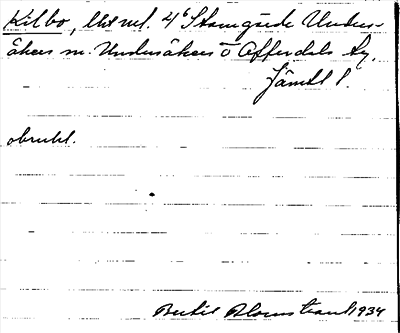 Kilbo, lht nl. 4⁶ Stamgärde Under-
åkers sn. Undersåkers o Offerdals tg.
Jämtl l.
obrukl.
Bertil Blomstrand 1934